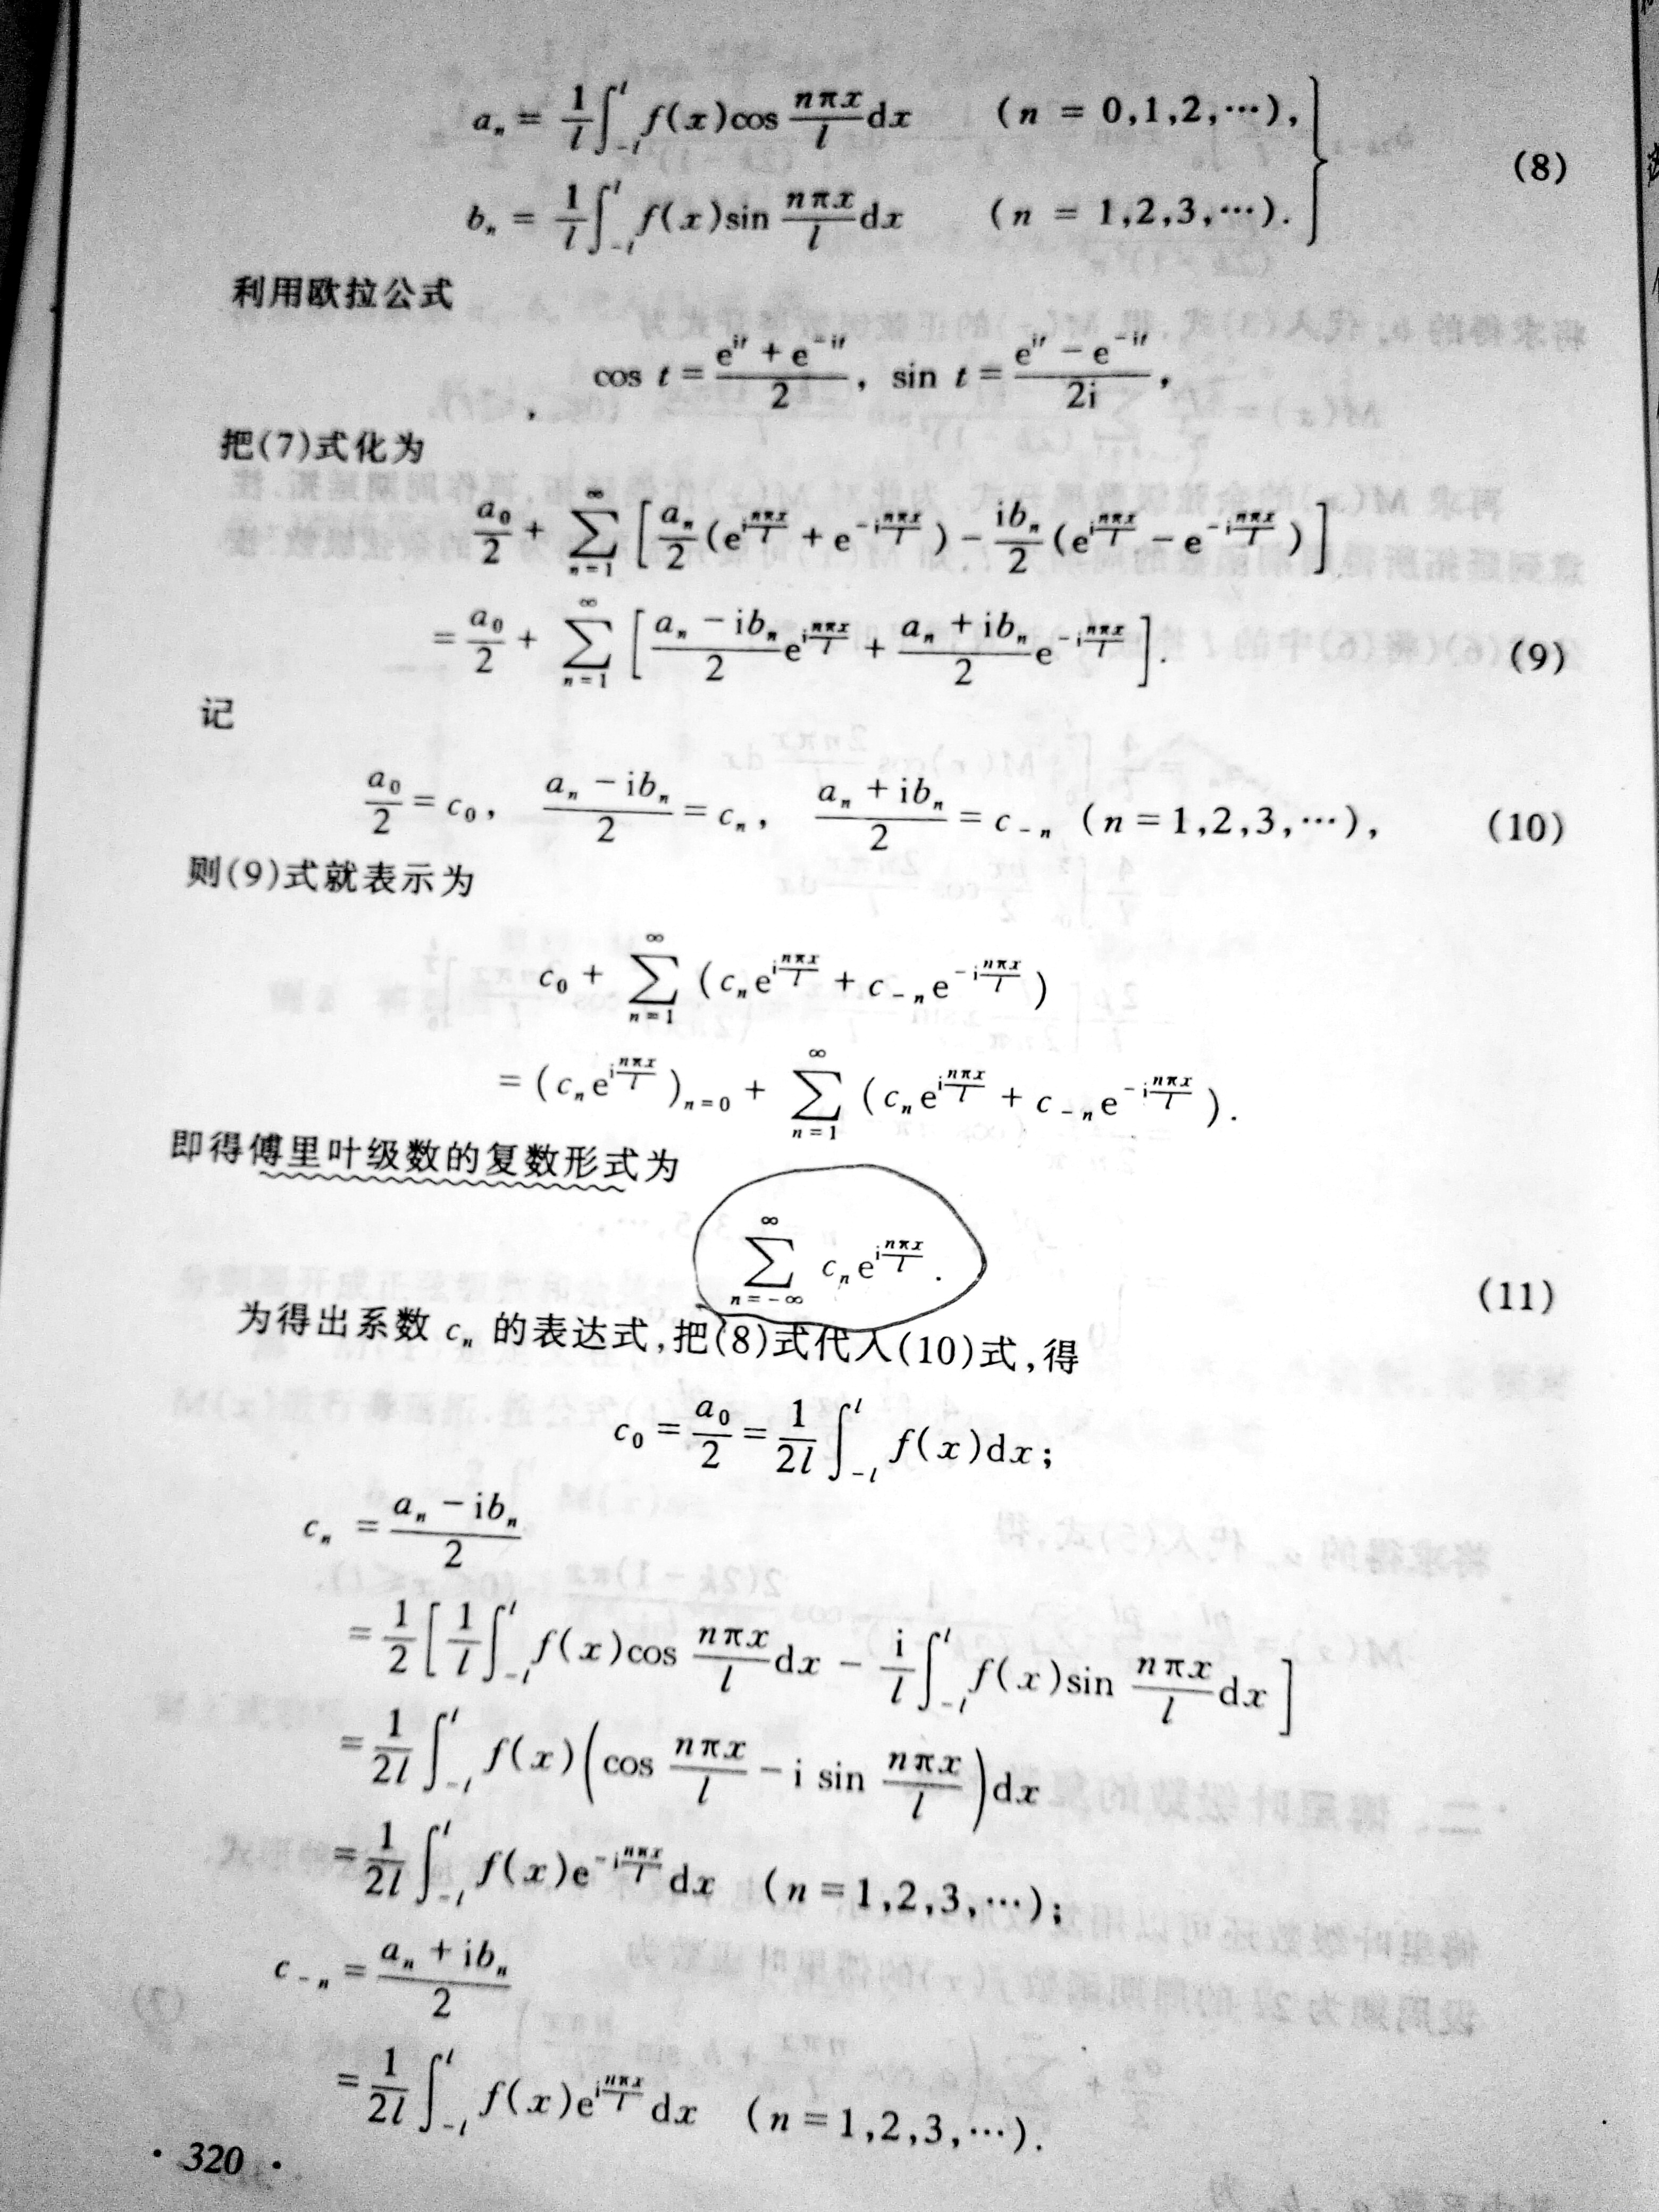 a_n = \frac{1}{l}\int_{-l}^{l} f(x)\cos\frac{n\pi x}{l}dx (n = 0,1,2,⋯),
(8)
b_n = \frac{1}{l}\int_{-l}^{l} f(x)\sin\frac{n\pi x}{l}dx (n = 1,2,3,⋯).
利用欧拉公式
\cos t = \frac{e^{it} + e^{-it}}{2}, \sin t = \frac{e^{it} - e^{-it}}{2i},
把(7)式化为
\frac{a_0}{2} + \sum_{n=1}^{\infty}\left[\frac{a_n}{2}(e^{i\frac{n\pi x}{l}} + e^{-i\frac{n\pi x}{l}}) - \frac{ib_n}{2}(e^{i\frac{n\pi x}{l}} - e^{-i\frac{n\pi x}{l}})\right]
= \frac{a_0}{2} + \sum_{n=1}^{\infty}\left[\frac{a_n - ib_n}{2}e^{i\frac{n\pi x}{l}} + \frac{a_n + ib_n}{2}e^{-i\frac{n\pi x}{l}}\right]. (9)
记
\frac{a_0}{2} = c_0, \frac{a_n - ib_n}{2} = c_n, \frac{a_n + ib_n}{2} = c_{-n} (n = 1,2,3,⋯), (10)
则(9)式就表示为
c_0 + \sum_{n=1}^{\infty}(c_n e^{i\frac{n\pi x}{l}} + c_{-n}e^{-i\frac{n\pi x}{l}})
= (c_n e^{i\frac{n\pi x}{l}})_{n=0} + \sum_{n=1}^{\infty}(c_n e^{i\frac{n\pi x}{l}} + c_{-n}e^{-i\frac{n\pi x}{l}}).
即得傅里叶级数的复数形式为
\sum_{n=-\infty}^{\infty} c_n e^{i\frac{n\pi x}{l}}. (11)
为得出系数 c_n 的表达式,把(8)式代入(10)式,得
c_0 = \frac{a_0}{2} = \frac{1}{2l}\int_{-l}^{l} f(x)dx;
c_n = \frac{a_n - ib_n}{2}
= \frac{1}{2}\left[\frac{1}{l}\int_{-l}^{l} f(x)\cos\frac{n\pi x}{l}dx - \frac{i}{l}\int_{-l}^{l} f(x)\sin\frac{n\pi x}{l}dx\right]
= \frac{1}{2l}\int_{-l}^{l} f(x)\left(\cos\frac{n\pi x}{l} - i\sin\frac{n\pi x}{l}\right)dx
= \frac{1}{2l}\int_{-l}^{l} f(x)e^{-i\frac{n\pi x}{l}}dx (n = 1,2,3,⋯);
c_{-n} = \frac{a_n + ib_n}{2}
= \frac{1}{2l}\int_{-l}^{l} f(x)e^{i\frac{n\pi x}{l}}dx (n = 1,2,3,⋯).
· 320 ·